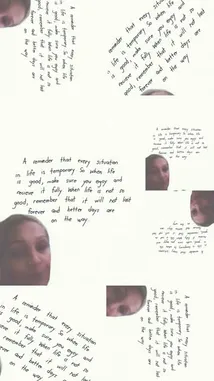 A reminder that every situation
in life is temporary. So when life
is good, make sure you enjoy and
receive it fully. When life is not so
good, remember that it will not last
forever and better days are
on the way.
A reminder that every situation
in life is temporary. So when life
is good, make sure you enjoy and
receive it fully. When life is not so
good, remember that it will not last
forever and better days are
on the way.
A reminder that every situation
in life is temporary. So when life
is good, make sure you enjoy and
receive it fully. When life is not so
good, remember that it will not last
forever and better days are
on the way.
A reminder that every situation
in life is temporary. So when life
is good, make sure you enjoy and
receive it fully. When life is not so
good, remember that it will not last
forever and better days are
on the way.
A reminder that every situation
in life is temporary. So when life
is good, make sure you enjoy and
receive it fully. When life is not so
good, remember that it will not last
forever and better days are
on the way.
A reminder that every situation
in life is temporary. So when life
is good, make sure you enjoy and
receive it fully. When life is not so
good, remember that it will not last
forever and better days are
on the way.